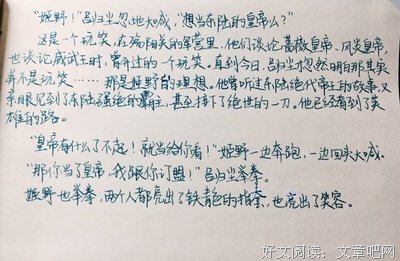 “姬野！”吕归尘忽地大喊，“想当东陆的皇帝么？”
这是一个玩笑，在殇阳关的军营里，他们谈论蔷薇皇帝、风炎皇帝，
也谈论威武王时，曾开过的一个玩笑。直到今日，吕归尘忽然明白那其实
并不是玩笑……那是姬野的理想。他曾听过东陆绝代帝王的故事，又
亲眼见到了东陆强绝的霸主，甚至接下了绝世的一刀。他已经看到了英
雄的路。
“皇帝有什么了不起！就当给你看！”姬野一边奔跑，一边回头大喊。
“那你当了皇帝，我跟你订盟！”吕归尘举拳。
姬野也举拳，两个人都亮出了铁青色的指套，也亮出了笑容。
好文阅读：文章吧网